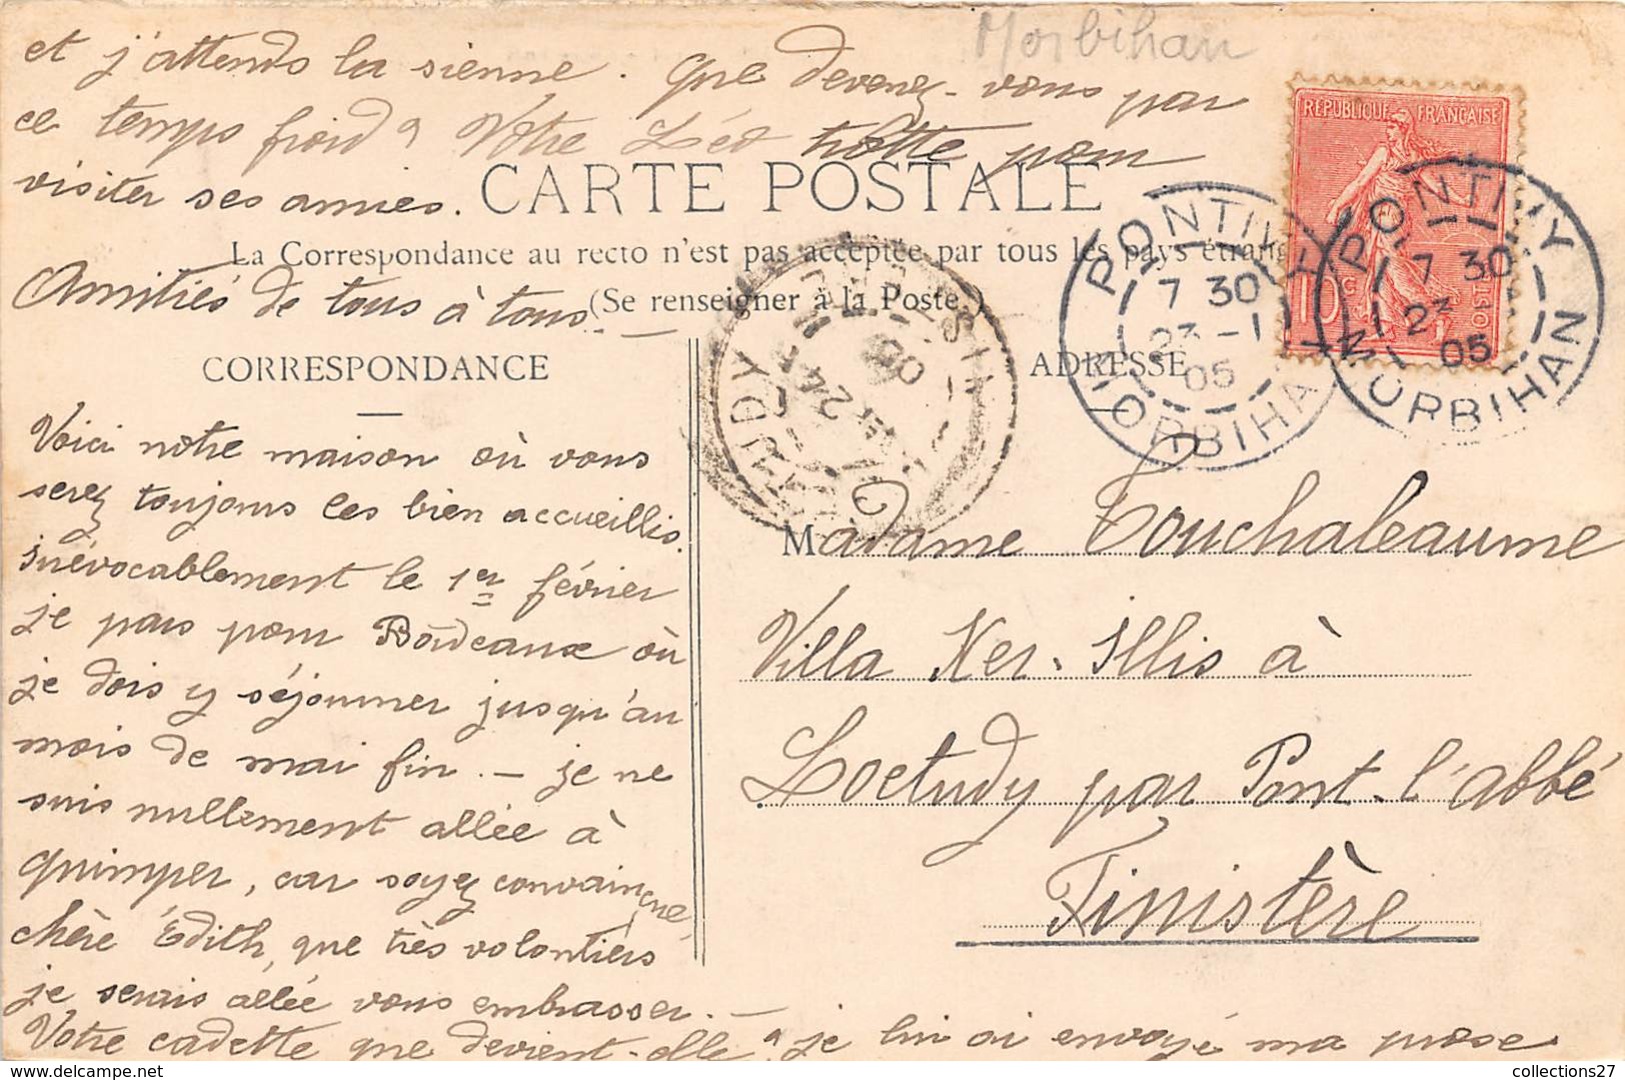 Morbihan
et j'attends la sienne. Que devenez-vous par
ce temps froid ? Votre Léo trotte pour
visiter ses amies.
CARTE POSTALE
La Correspondance au recto n'est pas acceptée par tous les pays étrang
(Se renseigner à la Poste.)
Amitiés de tous à tous.
RÉPUBLIQUE FRANÇAISE
10 c
POSTES
PONTIVY
7 30
23 - 1
05
MORBIHAN
PONTIVY
7 30
23
05
MORBIHAN
24
05
CORRESPONDANCE
ADRESSE
Voici notre maison où vous
serez toujours les bien accueillis.
Inévocablement le 1er février
je pars pour Bordeaux où
je dois y séjourner jusqu'au
mois de mai fin. - je ne
suis nullement allée à
Quimper, car soyez convaincue
chère Édith, que très volontiers
je serais allée vous embrasser. -
Votre cadette que devient-elle ? je lui ai envoyé ma prose
Madame Touchaleaume
Villa Ker-Illis à
Loctudy par Pont-l'abbé
Finistère
collections27